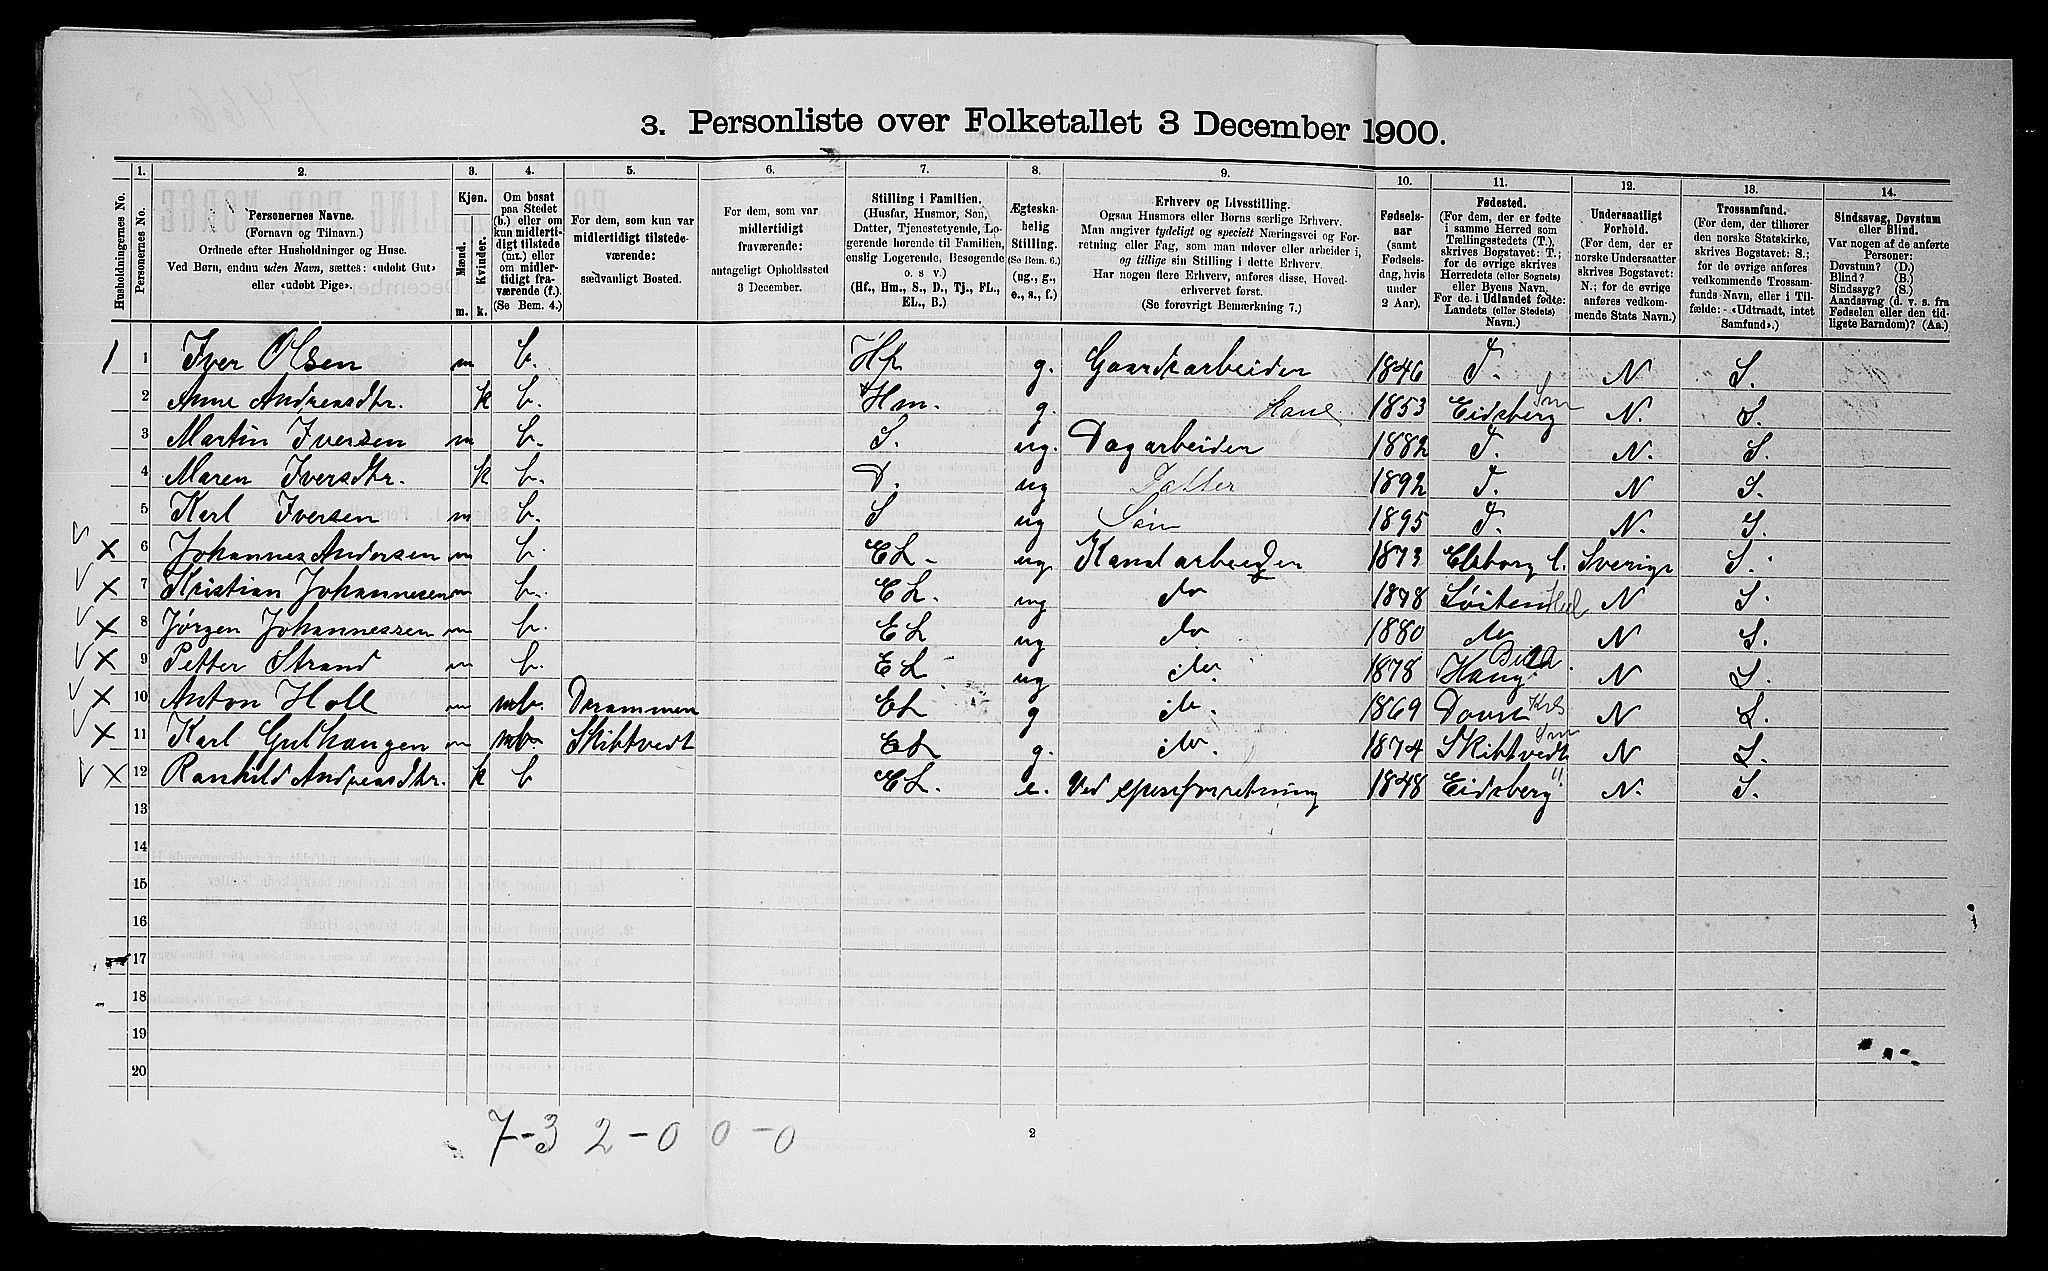 3. Personliste over Folketallet 3 December 1900.
1. 2. 3. 4. 5. 6. 7. 8. 9. 10. 11. 12. 13. 14.
Husholdningernes No.
Personernes No.
Personernes Navne.
(Fornavn og Tilnavn.)
Ordnede efter Husholdninger og Huse.
Ved Børn, endnu uden Navn, sættes: «udøbt Gut»
eller «udøbt Pige».
Kjøn.
Mænd.
Kvinder.
m. k.
Om bosat
paa Stedet
(b.) eller om
kun midlerti-
digt tilstede
(mt.) eller
om midler-
tidigt fra-
værende (f.)
(Se Bem. 4.)
For dem, som kun var
midlertidigt tilstede-
værende:
sædvanligt Bosted.
For dem, som var
midlertidigt
fraværende:
antageligt Opholdssted
3 December.
Stilling i Familien.
(Husfar, Husmor, Søn,
Datter, Tjenestetyende, Lo-
gerende hørende til Familien,
enslig Logerende, Besøgende
o. s. v.)
(Hf., Hm., S., D., Tj., FL.,
EL., B.)
Ægteska-
belig
Stilling.
(Se Bem. 6.)
(ug., g.,
e., s., f.)
Erhverv og Livsstilling.
Ogsaa Husmors eller Børns særlige Erhverv.
Man angiver tydeligt og specielt Næringsvei og For-
retning eller Fag, som man udøver eller arbeider i,
og tillige sin Stilling i dette Erhverv.
Har nogen flere Erhverv, anføres disse, Hoved-
erhvervet først.
(Se forøvrigt Bemærkning 7.)
Fødsels-
aar
(samt
Fødsels-
dag, hvis
under
2 Aar).
Fødested.
(For dem, der er fødte
i samme Herred som
Tællingsstedets (T.),
skrives Bogstavet: T.;
for de øvrige skrives
Herredets (eller Sognets)
eller Byens Navn.
For de i Udlandet fødte:
Landets (eller Stedets)
Navn.)
Undersaatligt
Forhold.
(For dem, der er
norske Undersaatter
skrives Bogstavet:
N.; for de øvrige
anføres vedkom-
mende Stats Navn.)
Trossamfund.
(For dem, der tilhører
den norske Statskirke,
skrives Bogstavet: S.;
for de øvrige anføres
vedkommende Trossam-
funds Navn, eller i Til-
fælde: «Udtraadt, intet
Samfund».)
Sindssvag, Døvstum
eller Blind.
Var nogen af de anførte
Personer:
Døvstum? (D.)
Blind? (B.)
Sindssyg? (S.)
Aandssvag (d. v. s. fra
Fødselen eller den tid-
ligste Barndom)? (Aa.)
1 1 Iver Olsen m b. Hf g. Gaardsarbeider 1846 T. N S.
2 Anne Andreasdtr. k b. Hm. g. Kone 1853 Eidsberg Sm N. S.
3 Martin Iversen m b. S. ug. Dagarbeider 1882 T. N. S.
4 Maren Iversdtr. k b. D. ug Datter 1892 T. N S.
5 Karl Iversen m b. S ug Søn 1895 T. N. S.
6 Johannes Andersen m b. EL. ug. Kanalarbeider 1873 Elsborg l. Sverige S.
7 Kristian Johannesen m b. EL. ug do 1878 Løiten Hed N S.
8 Jørgen Johannessen m b. EL ug do 1880 do N S.
9 Petter Strand m b. EL ug do. 1878 Haug N S.
10 Anton Holl m mb. Drammen EL g do. 1869 N S.
11 Karl Gulhaugen m mb. Skibtvedt EL g. do. 1874 Skibtvedt Sm N S.
12 Ranhild Andreasdtr. k b EL. e. Ved spiseforretning 1848 Eidsberg " N. S.
13
14
15
16
17
18
19
20
7-3 2-0 0-0
2